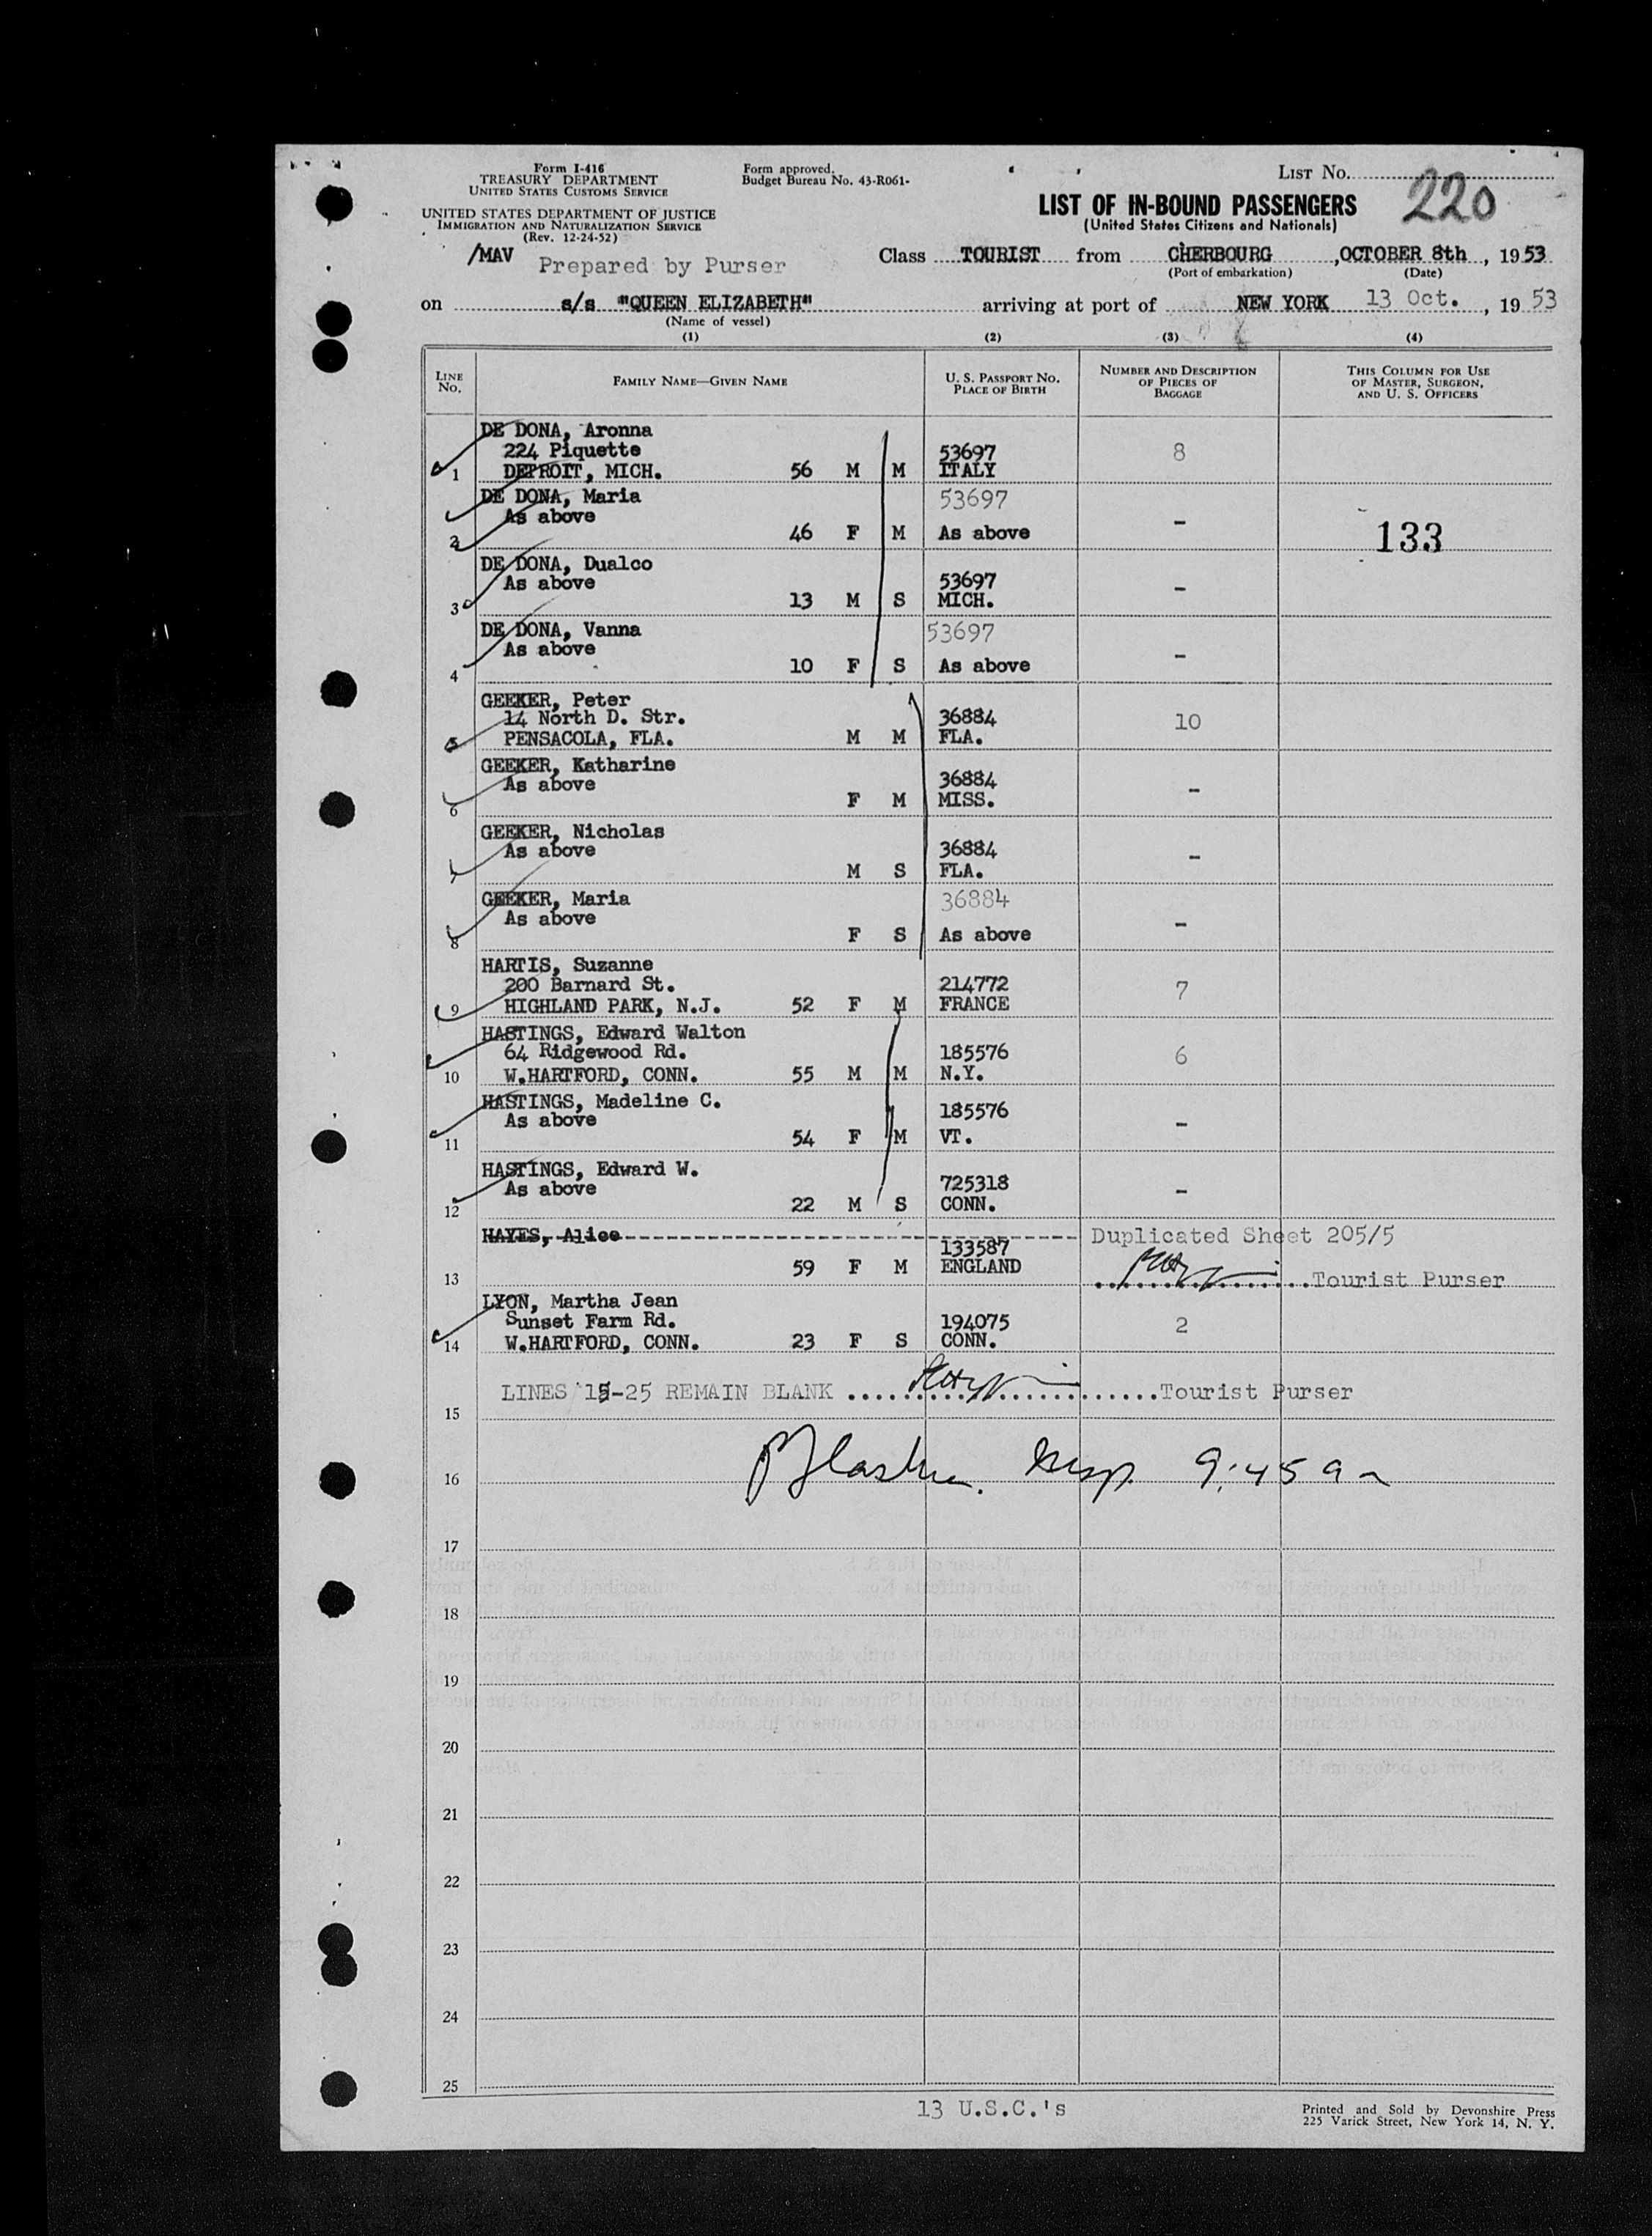 Form I-416
TREASURY DEPARTMENT
UNITED STATES CUSTOMS SERVICE
UNITED STATES DEPARTMENT OF JUSTICE
IMMIGRATION AND NATURALIZATION SERVICE
(Rev. 12-24-52)
Form approved.
Budget Bureau No. 43-R061-
LIST NO. 220
LIST OF IN-BOUND PASSENGERS
(United States Citizens and Nationals)
/MAV Prepared by Purser
Class TOURIST from CHERBOURG, OCTOBER 8th, 1953
(Port of embarkation) (Date)
on s/s "QUEEN ELIZABETH" arriving at port of NEW YORK 13 Oct., 1953
(Name of vessel)
(1) (2) (3) (4)
LINE NO.
FAMILY NAME—GIVEN NAME
U. S. PASSPORT NO. PLACE OF BIRTH
NUMBER AND DESCRIPTION OF PIECES OF BAGGAGE
THIS COLUMN FOR USE OF MASTER, SURGEON, AND U. S. OFFICERS
DE DONA, Aronna
224 Piquette 53697 8
1 DETROIT, MICH. 56 M M ITALY
DE DONA, Maria 53697
As above -
2 46 F M As above 133
DE DONA, Dualco
As above 53697 -
3 13 M S MICH.
DE DONA, Vanna 53697
As above -
4 10 F S As above
GEEKER, Peter
14 North D. Str. 36884 10
5 PENSACOLA, FLA. M M FLA.
GEEKER, Katharine
As above 36884 -
6 F M MISS.
GEEKER, Nicholas
As above 36884 -
7 M S FLA.
GEEKER, Maria 36884
As above -
8 F S As above
HARTIS, Suzanne
200 Barnard St. 214772 7
9 HIGHLAND PARK, N.J. 52 F M FRANCE
HASTINGS, Edward Walton
64 Ridgewood Rd. 185576 6
10 W.HARTFORD, CONN. 55 M M N.Y.
HASTINGS, Madeline C.
As above 185576 -
11 54 F M VT.
HASTINGS, Edward W.
As above 725318 -
12 22 M S CONN.
HAYES, Alice Duplicated Sheet 205/5
133587
13 59 F M ENGLAND Tourist Purser
LYON, Martha Jean
Sunset Farm Rd. 194075 2
14 W.HARTFORD, CONN. 23 F S CONN.
LINES 15-25 REMAIN BLANK Tourist Purser
15
16 9:45 a
17
18
19
20
21
22
23
24
25
13 U.S.C.'s
Printed and Sold by Devonshire Press
225 Varick Street, New York 14, N. Y.